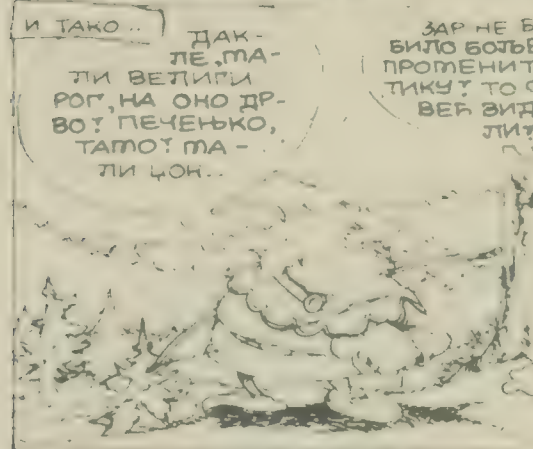 И ТАКО..
ДАК-
ЛЕ, МА-
ЛИ ВЕЛИГИ
РОГ, НА ОНО ДР-
ВО! ПЕЧЕЊКО,
ТАМО! МА-
ЛИ ЏОН..
ЗАР НЕ
БИЛО БОЉЕ
ПРОМЕНИТ
ТИКУ? ТО
ВЕЋ ВИД
ЛИ